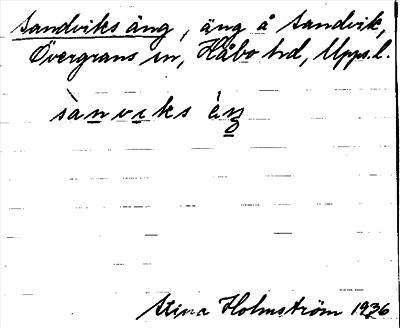 Sandviks äng, äng å Sandvik,
Övergrans sn, Håbo hd, Upps. l.
sànviks èŋ
Stina Holmström 1936